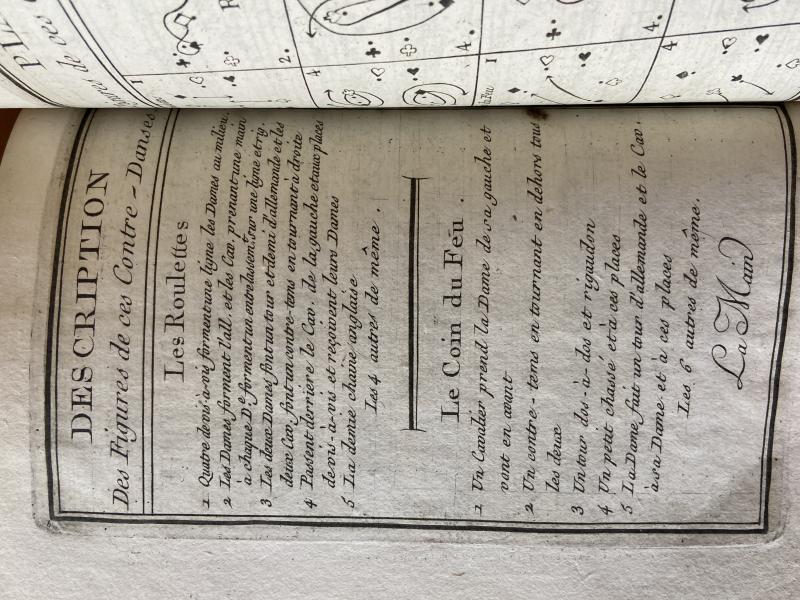 DESCRIPTION
Des Figures de ces Contre-Danses
Les Roulettes
1 Quatre de vis-à-vis forment une ligne les Dames au milieu.
2 Les Dames forment l'all. et les Cav. prenant une main
à chaque De forment un entrelasemt. sur une ligne et rig.
3 Les deux Dames font un tour et demi d'allemande et les
deux Cav. font un contre-tems en tournant à droite
4 Passent derriere le Cav. de la gauche et aux places
de vis-à-vis et reçoivent leurs Dames
5 La demie chaine anglaise
Les 4 autres de même.
Le Coin du Feu.
1 Un Cavalier prend la Dame de sa gauche et
vont en avant
2 Un contre-tems en tournant en dehors tous
les deux
3 Un tour dos-à-dos et rigaudon
4 Un petit chassé et à ces places
5 La Dame fait un tour d'allemande et le Cav.
à sa Dame et à ces places
Les 6 autres de même.
La Main